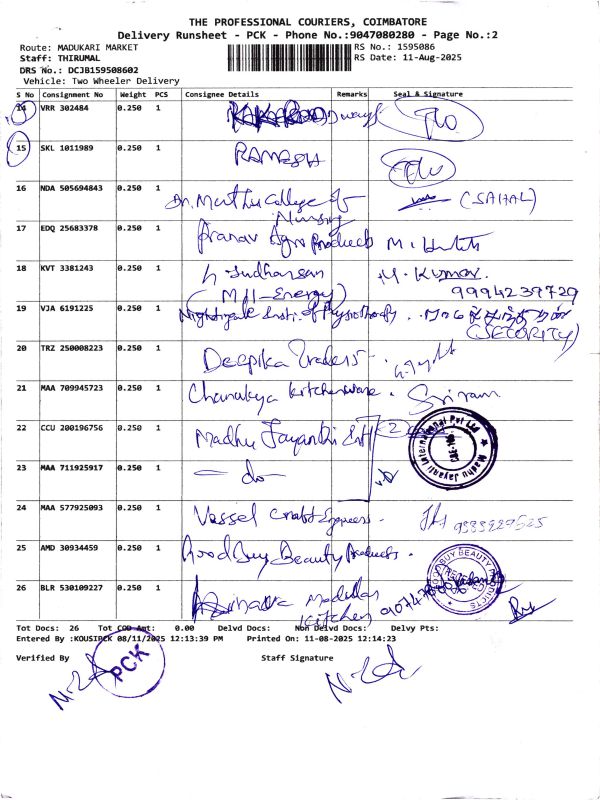 THE PROFESSIONAL COURIERS, COIMBATORE
Delivery Runsheet - PCK - Phone No.:9047080280 - Page No.:2
Route: MADUKARI MARKET RS No.: 1595086
Staff: THIRUMAL RS Date: 11-Aug-2025
DRS No.: DCJB159508602
Vehicle: Two Wheeler Delivery
S No Consignment No Weight PCS Consignee Details Remarks Seal & Signature
14 VRR 302484 0.250 1
15 SKL 1011989 0.250 1 RAMESH
16 NDA 505694843 0.250 1 College of (SAHAL)
Nursing
17 EDQ 25683378 0.250 1 Pranav Agro Products M.
18 KVT 3381243 0.250 1 Sudharsan M. Kumar.
(MH-Energy) 9994239729
19 VJA 6191225 0.250 1 Nightingale Insti. of Physiotherapy.
(SECORITY)
20 TRZ 250008223 0.250 1 Deepika Traders
21 MAA 709945723 0.250 1 Chanakya kitchenware. Sriram
22 CCU 200196756 0.250 1 Madhu Jayanthi
Madhu Jayanti International Pvt Ltd
23 MAA 711925917 0.250 1 - do -
24 MAA 577925093 0.250 1 Vessel Craft Engineers.
25 AMD 30934459 0.250 1 Good Buy Beauty Products.
26 BLR 530109227 0.250 1 Modular
Kitchen
Tot Docs: 26 Tot COD Amt: 0.00 Delvd Docs: Non Delvd Docs: Delvy Pts:
Entered By :KOUSIPCK 08/11/2025 12:13:39 PM Printed On: 11-08-2025 12:14:23
Verified By Staff Signature
PCK